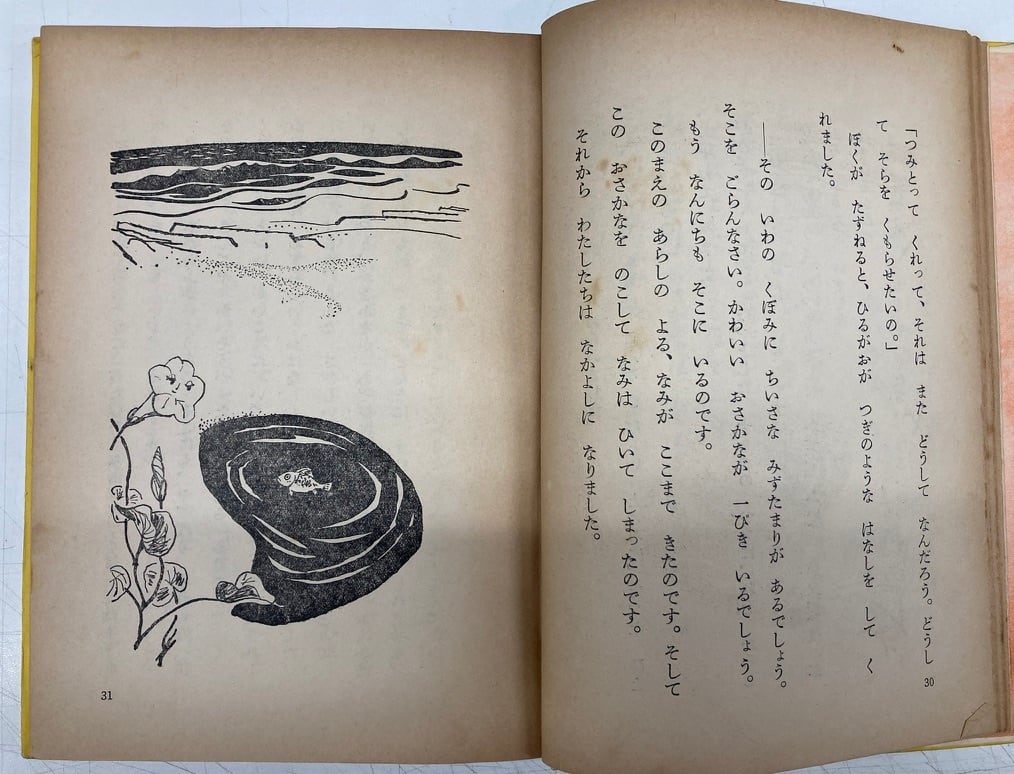 「つみとって　くれって、それは　また　どうして　なんだろう。どうし
て　そらを　くもらせたいの。」
ぼくが　たずねると、ひるがおが　つぎのような　はなしを　して　く
れました。
――その　いわの　くぼみに　ちいさな　みずたまりが　あるでしょう。
そこを　ごらんなさい。かわいい　おさかなが　一ぴき　いるでしょう。
もう　なんにちも　そこに　いるのです。
このまえの　あらしの　よる、なみが　ここまで　きたのです。そして
この　おさかなを　のこして　なみは　ひいて　しまったのです。
それから　わたしたちは　なかよしに　なりました。
30
31